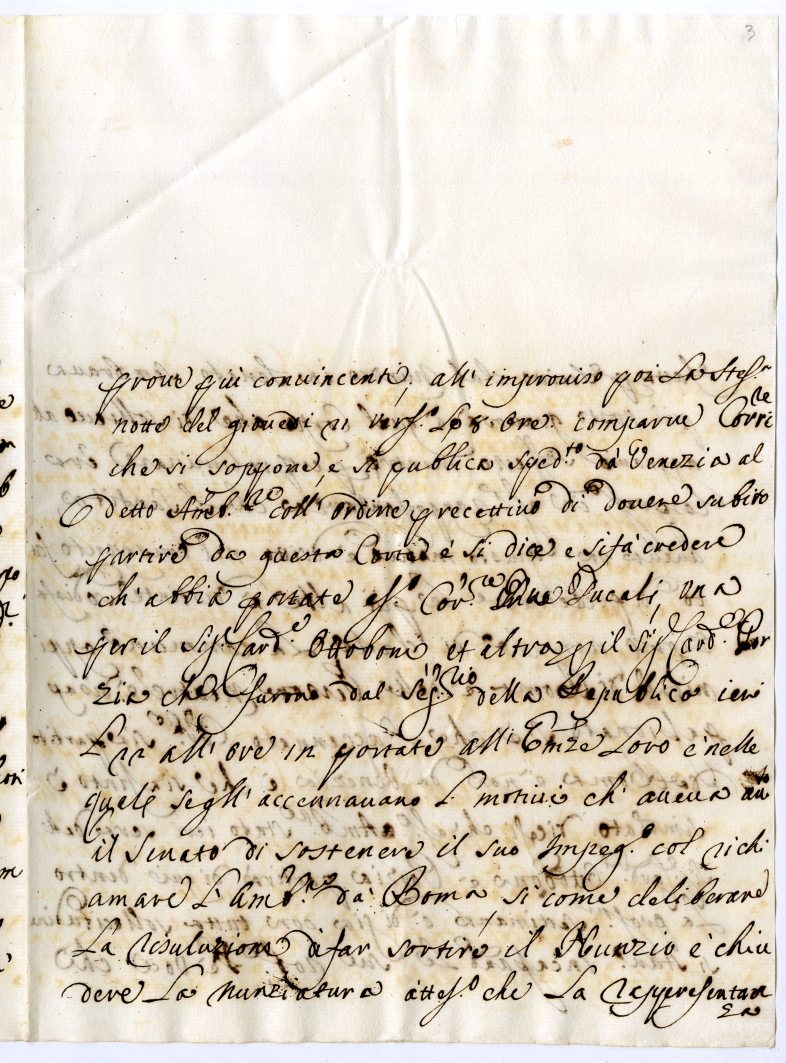 3
prove più convincenti, all' improviso poi La Stess.ª
notte del giovedi 21 vers.º Le 8 Ore comparve Corrre
che si soppone, e si publica sped.to dà Venezia al
detto Amb.re coll' ordine precettivo di dovere subito
partire da questa Corte e si dice e si fà credere
ch' abbia portate ess.º Cor.re Due Ducali, una
per il Sig.r Card.e Ottoboni et altra p il Sig.r Card.e Por
zia che furono dal Seg.rio della Republica ieri
Lr 22 all' ore in portate all' Emze Loro e nelle
quali segli accennavano L motivi ch' aveva auto
il Senato di sostenere il suo Impeg.º col richi
amare L' Amb.re dà Roma si come deliberare
La risoluzione di far sortire il Nunzio e chiu
dere La Nunziatura attes.º che La rappresentan
za